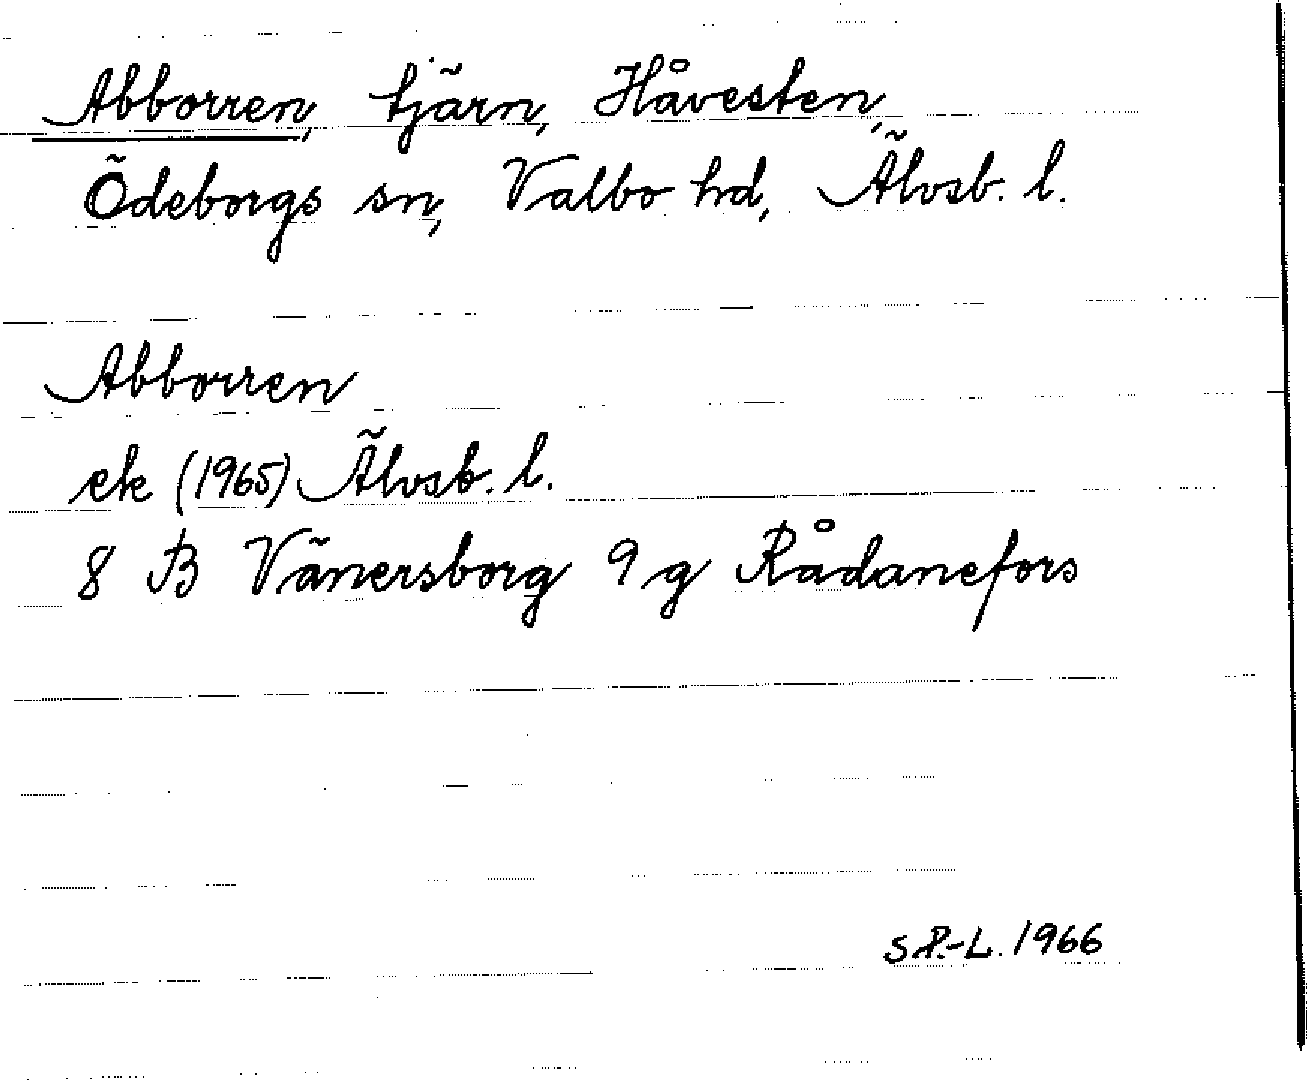 Abborren, tjärn, Håvesten,
Ödeborgs sn, Valbo hd, Älvsb. l.
Abborren
ek (1965) Älvsb. l.
8 B Vänersborg 9 g Rådanefors
S P.-L. 1966